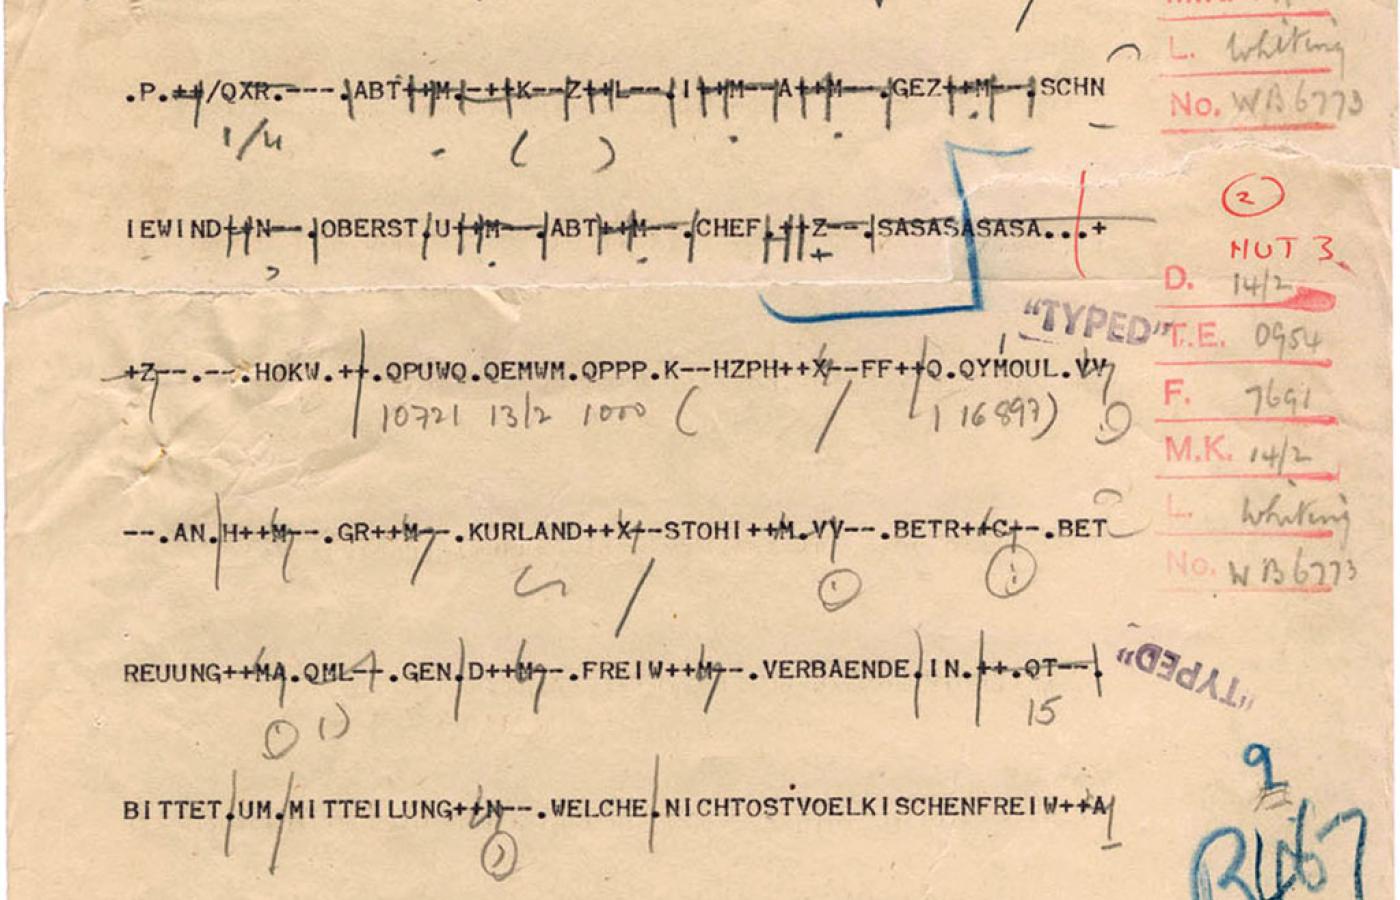 .P.++/QXR.----.ABT++M.-++K--Z++L--.I++M--A++M--.GEZ++M--.SCHN
1/4
( )
L. Whiting
No. WB 6773
IEWIND++N--.OBERST.U++M--.ABT++M--.CHEF.++Z--.SASASASASA...+
2
MUT 3
D. 14/2
"TYPED"
T.E. 0954
+Z--.--.HOKW.++.QPUWQ.QEMWM.QPPP.K--HZPH++X--FF++Q.QYMOUL.VV
10721 13/2 1000 ( / 1 16897)
F. 7691
M.K. 14/2
L. Whiting
--.AN.H++M--.GR++M--.KURLAND++X--STOHI++M.VV--.BETR++C--.BET
No. WB 6773
REUUNG++MA.QML--.GEN.D++M--.FREIW++M--.VERBAENDE.IN.++.QT--.
15
"TYPED"
BITTET.UM.MITTEILUNG++N--.WELCHE.NICHTOSTVOELKISCHENFREIW++A